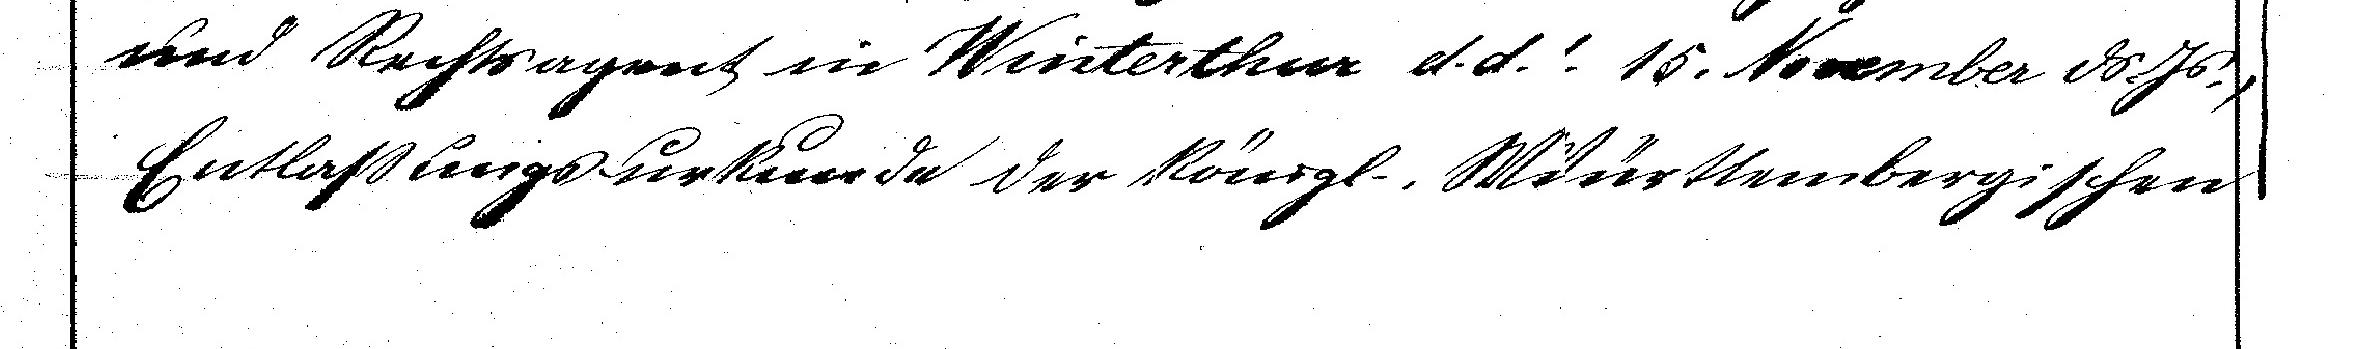 und Rechtsagent in Winterthur d. d. 15. November ds. Js.,
Entlaßungsurkunde der Königl. Württembergischen